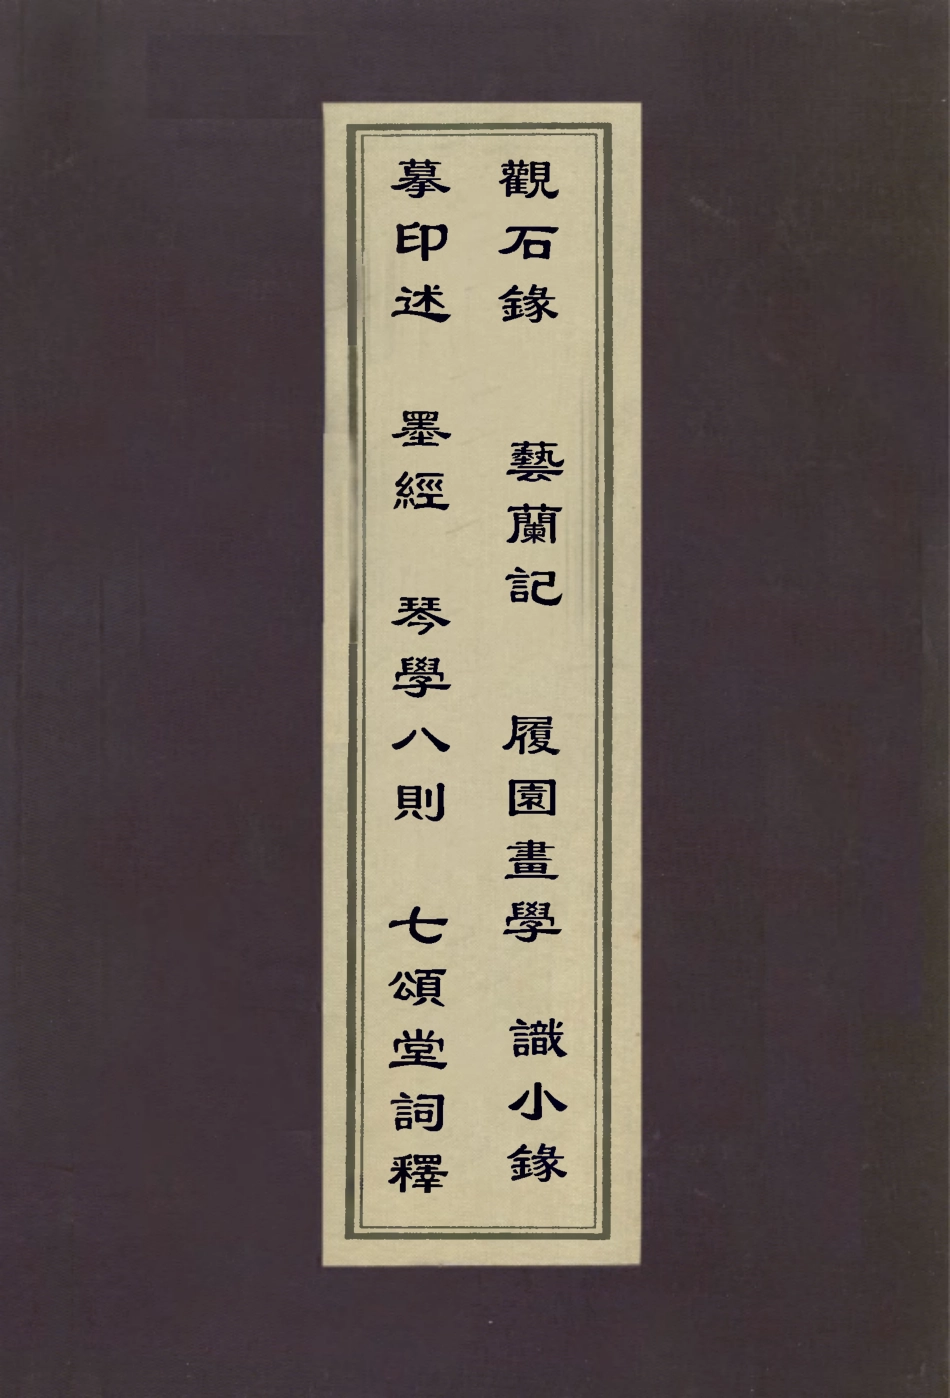 觀石錄 藝蘭記 履園畫學 識小錄
摹印述 墨經 琴學八則 七頌堂詞釋